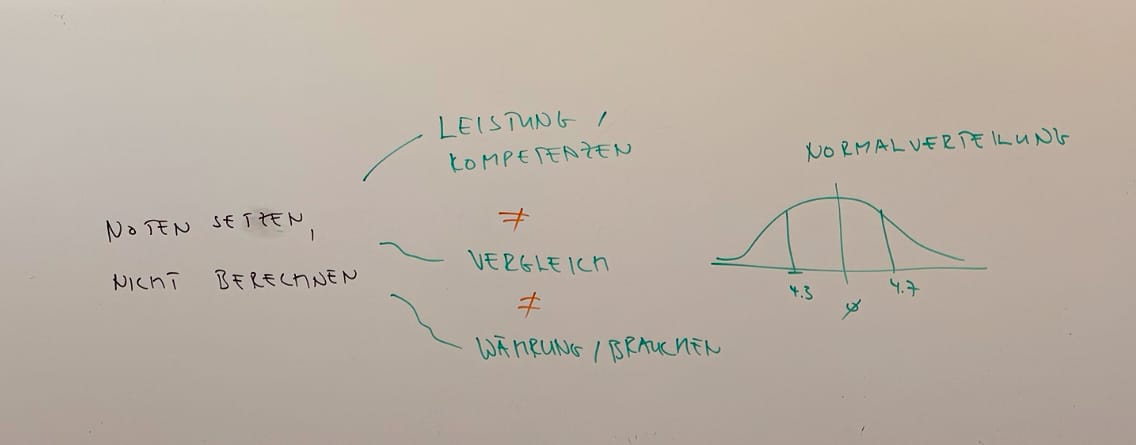 NOTEN SETZEN,
NICHT BERECHNEN
LEISTUNG /
KOMPETENZEN
≠
VERGLEICH
≠
WÄHRUNG / BRAUCHEN
NORMALVERTEILUNG
4.3
Ø
4.7